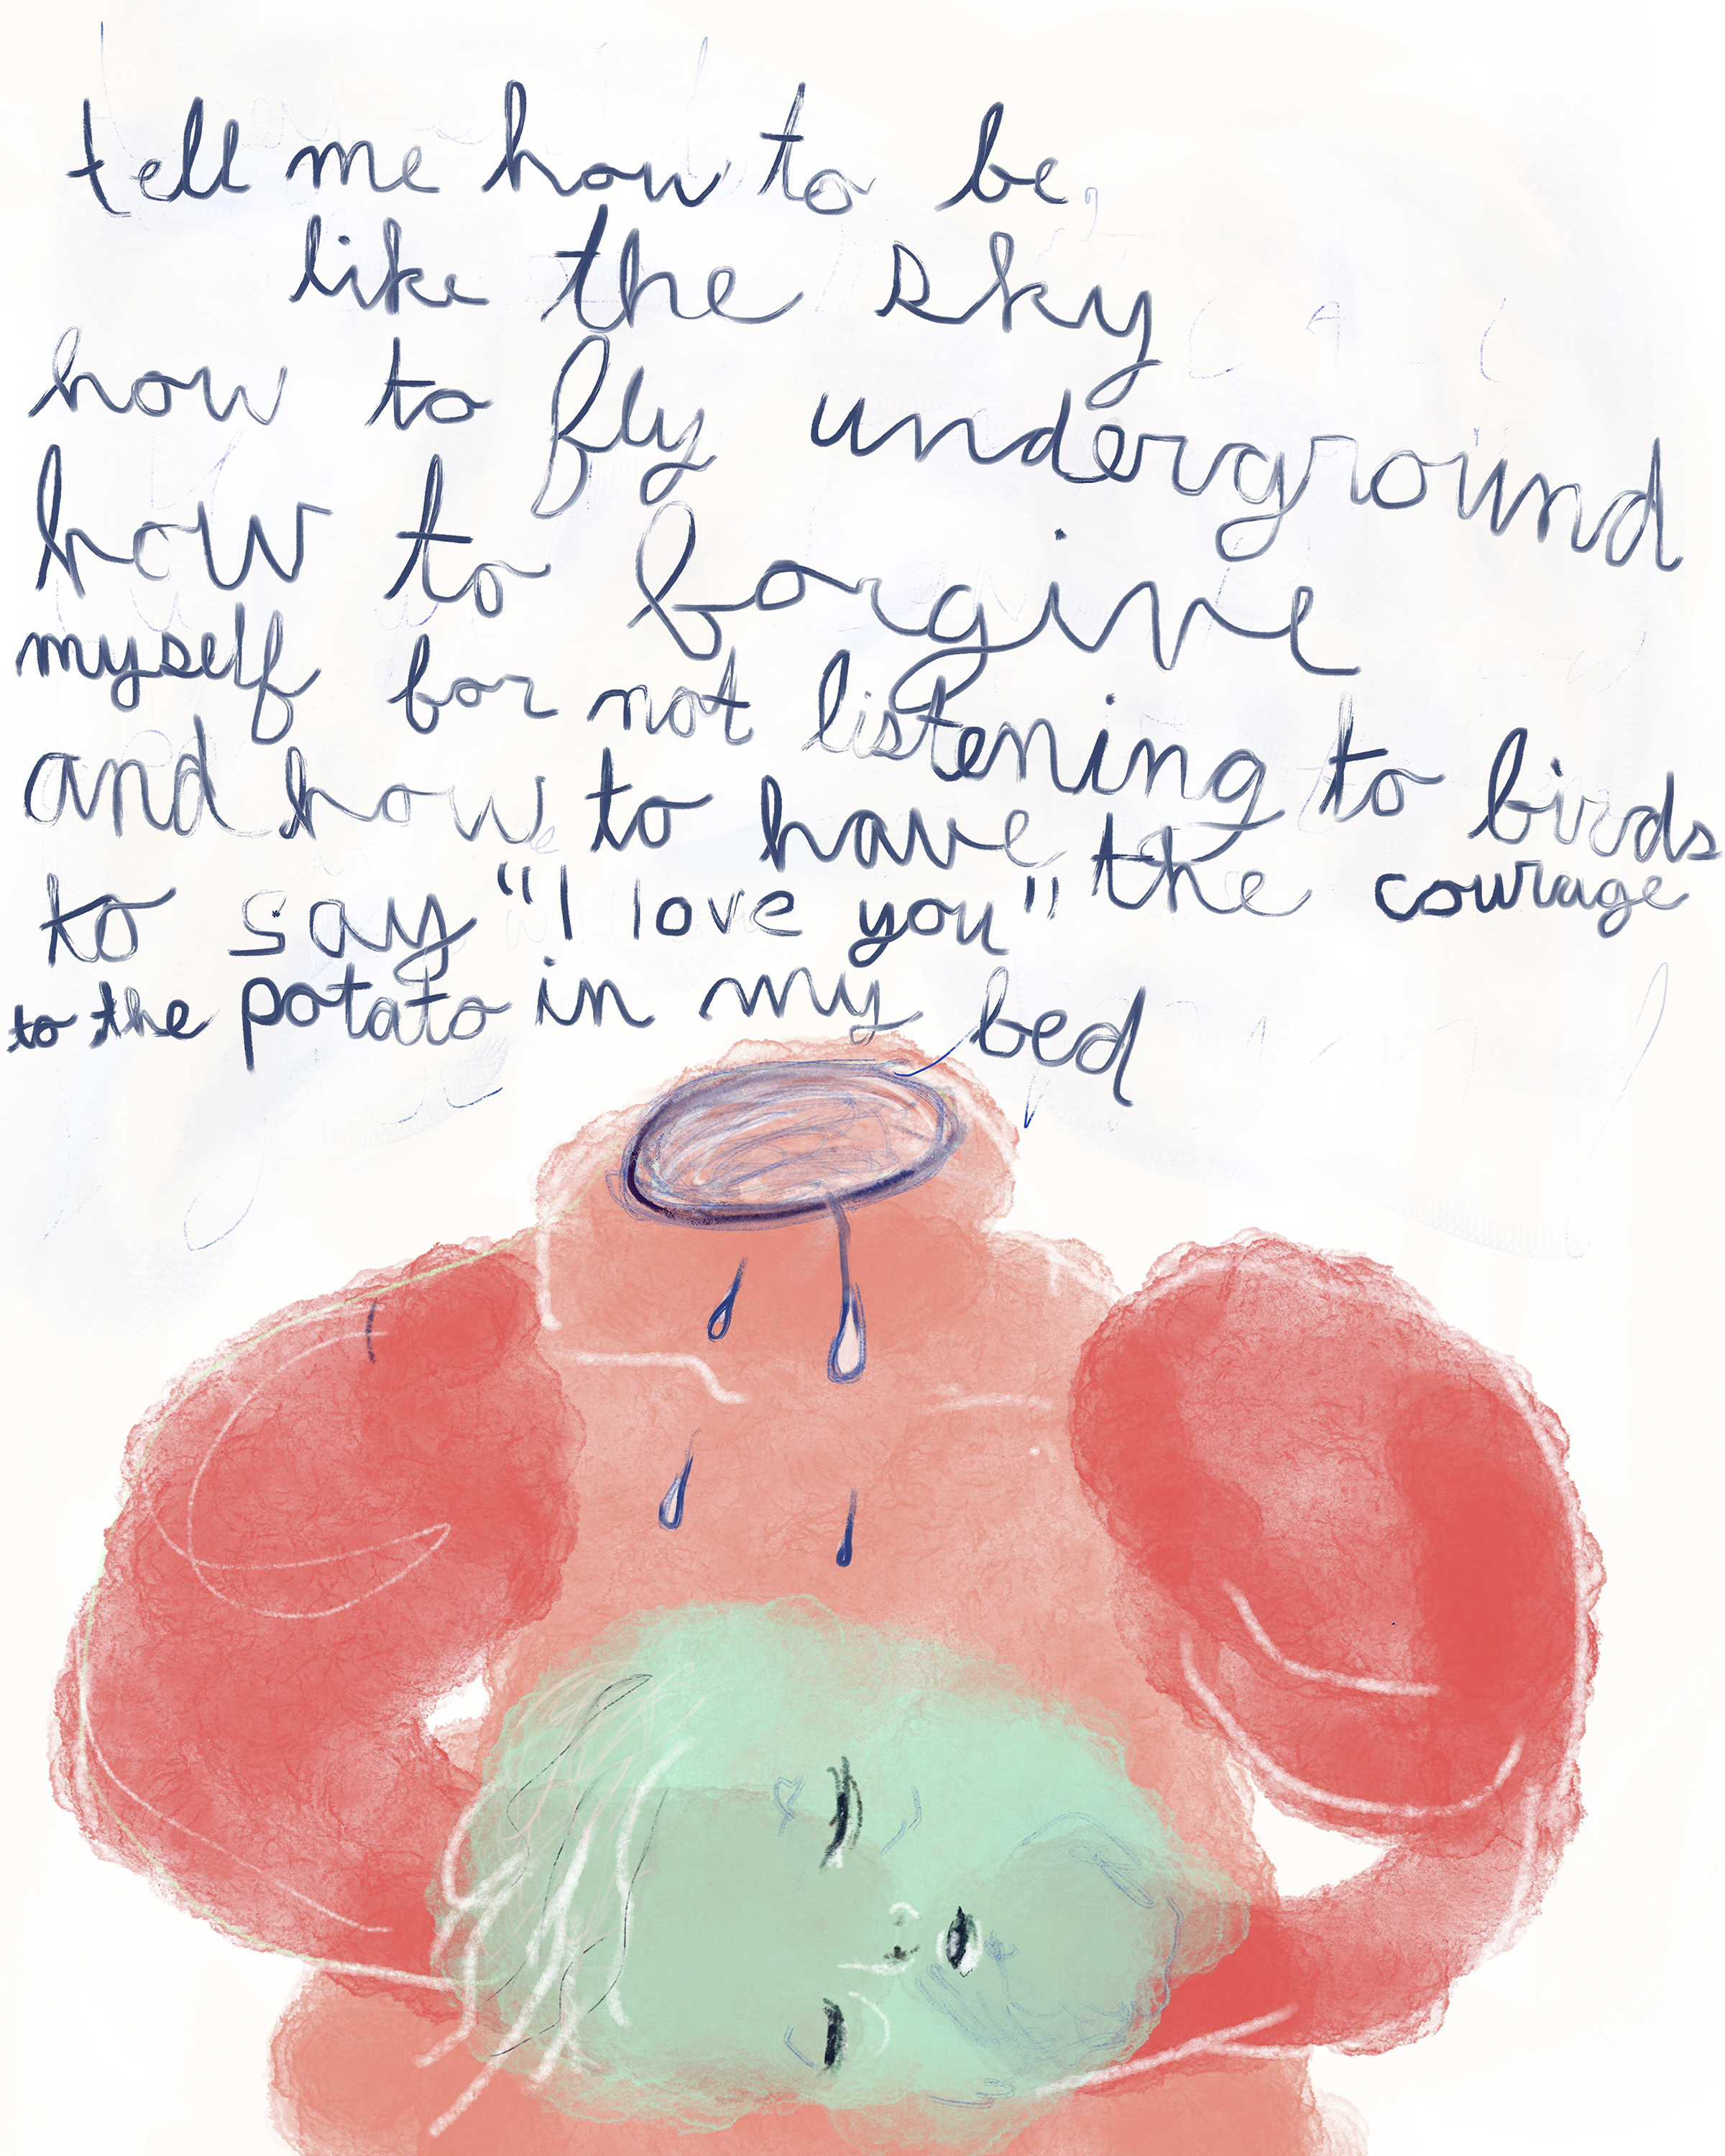 tell me how to be,
like the sky
how to fly underground
how to forgive
myself for not listening to birds
and how to have the courage
to say "I love you"
to the potato in my bed